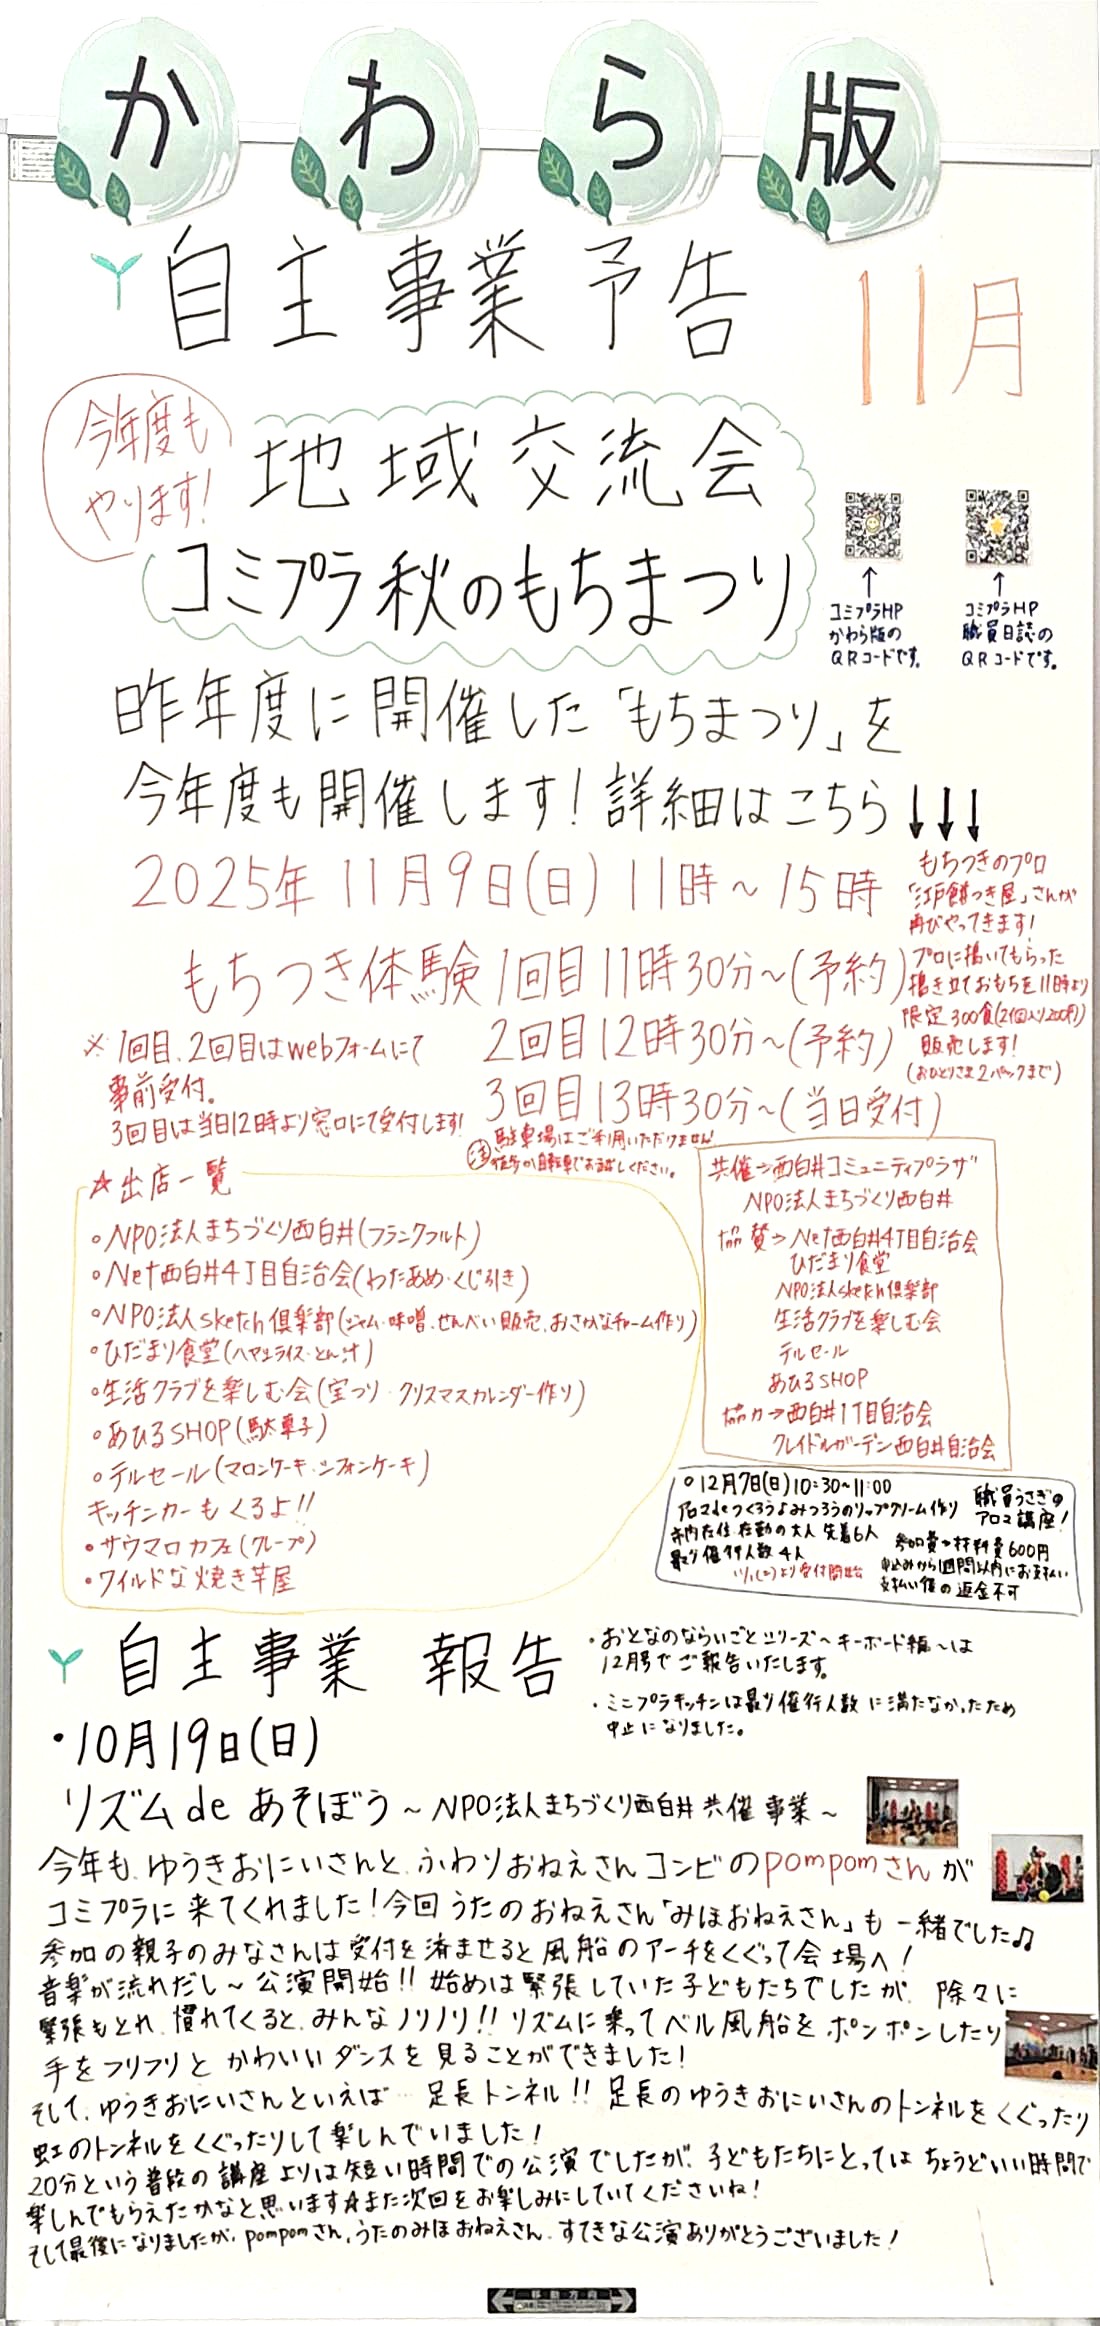 かわら版
自主事業予告
11月
今年度も
やります!
地域交流会
コミプラ秋のもちまつり
コミプラHP
かわら版の
QRコードです。
コミプラHP
職員日誌の
QRコードです。
昨年度に開催した「もちまつり」を
今年度も開催します!詳細はこちら↓↓↓
2025年11月9日(日)11時~15時
もちつき体験1回目11時30分~(予約)
2回目12時30分~(予約)
3回目13時30分~(当日受付)
※1回目、2回目はwebフォームにて
事前受付。
3回目は当日12時より窓口にて受付します!
もちつきのプロ
「江戸餅つき屋」さんが
再びやってきます!
プロに搗いてもらった
搗き立ておもちを11時より
限定300食(2個入り200円)
販売します!
(おひとりさま2パックまで)
注 駐車場はご利用いただけません!
徒歩か自転車でお越しください。
☆出店一覧
○NPO法人まちづくり西白井(フランクフルト)
○Net西白井4丁目自治会(わたあめ・くじ引き)
○NPO法人sketch倶楽部(ジャム・味噌・せんべい販売、おさかなチャーム作り)
○ひだまり食堂(ハヤシライス・とん汁)
○生活クラブを楽しむ会(宝つり・クリスマスカレンダー作り)
○あひるSHOP(駄菓子)
○テルセール(マロンケーキ・シフォンケーキ)
キッチンカーもくるよ!!
・サウマロカフェ(クレープ)
・ワイルドな焼き芋屋
共催→西白井コミュニティプラザ
NPO法人まちづくり西白井
協賛→Net西白井4丁目自治会
ひだまり食堂
NPO法人sketch倶楽部
生活クラブを楽しむ会
テルセール
あひるSHOP
協力→西白井1丁目自治会
クレイドルガーデン西白井自治会
○12月7日(日)10:30~11:00
アロマdeつくろう♪みつろうのリップクリーム作り
市内在住・在勤の大人 先着6人
最少催行人数4人
より受付開始
職員うさぎの
アロマ講座!
参加費→材料費600円
申込みから1週間以内にお支払い
支払い後の返金不可
自主事業 報告
・おとなのならいごとシリーズ~キーボード編~は
12月号でご報告いたします。
・ミニプラキッチンは最少催行人数に満たなかったため
中止になりました。
・10月19日(日)
リズムdeあそぼう~NPO法人まちづくり西白井共催事業~
今年も、ゆうきおにいさんと、ふわりおねえさんコンビのpompomさんが
コミプラに来てくれました!今回うたのおねえさん「みほおねえさん」も一緒でした♫
参加の親子のみなさんは受付を済ませると風船のアーチをくぐって会場へ!
音楽が流れだし~公演開始!!始めは緊張していた子どもたちでしたが、除々に
緊張もとれ、慣れてくると、みんなノリノリ!!リズムに乗ってベル風船をポンポンしたり
手をフリフリとかわいいダンスを見ることができました!
そして、ゆうきおにいさんといえば…足長トンネル!!足長のゆうきおにいさんのトンネルをくぐったり
虹のトンネルをくぐったりして楽しんでいました!
20分という普段の講座よりは短い時間での公演でしたが、子どもたちにとってはちょうどいい時間で
楽しんでもらえたかなと思います☆また次回をお楽しみにしていてくださいね!
そして最後になりましたが、pompomさん、うたのみほおねえさん、すてきな公演ありがとうございました!
移動方向